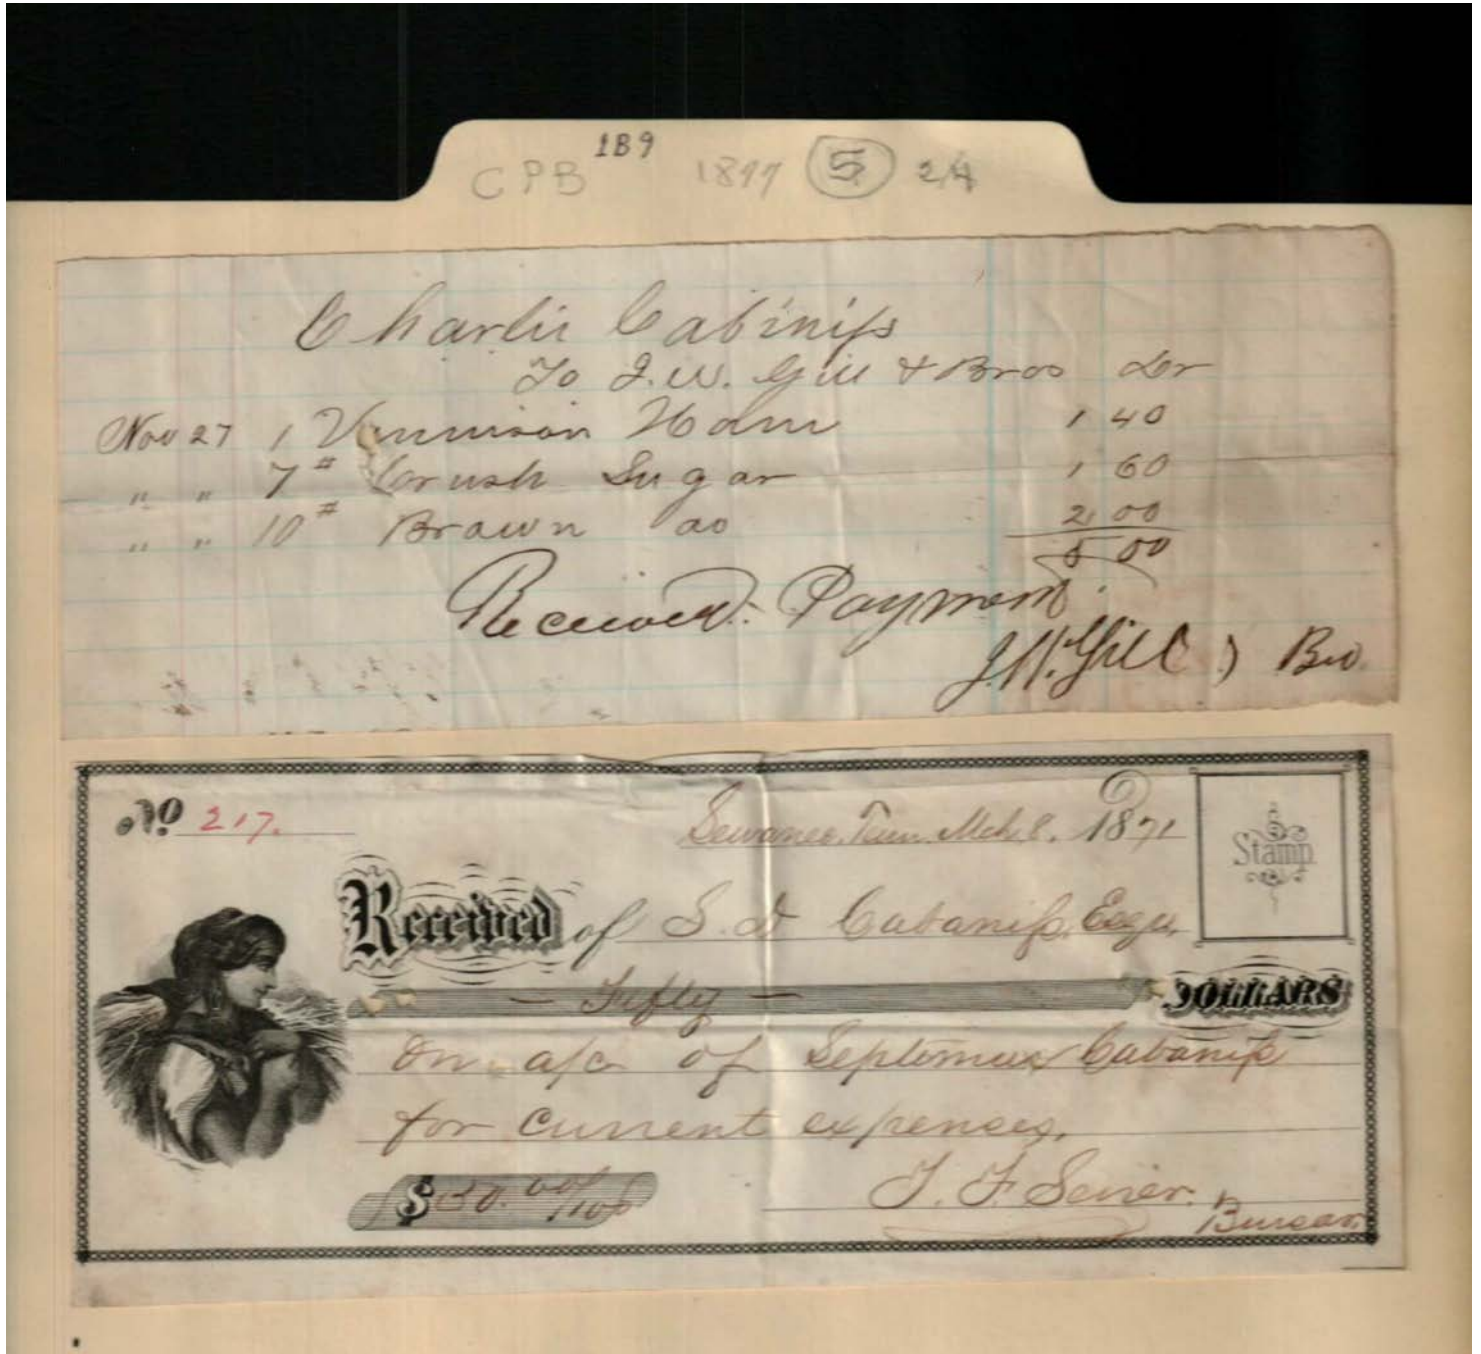 CPB 1B9 1877 5 24
Charlie Cabiniss
To J.W. Gill & Bros Dr
Nov 27 1 Vennison Ham 1 40
" " 7# Crush Sugar 1 60
" " 10# Brown do 2 00
5 00
Received Payment
J.W. Gill & Bro
No 217. Sewanee, Tenn. Mch 8. 1871
Stamp
Received of S. D Cabaniss, Esqu.
— Fifty — DOLLARS
on a/c of Septimus Cabaniss
for current expenses.
$50.00/100 T. F. Sevier.
Bursar.